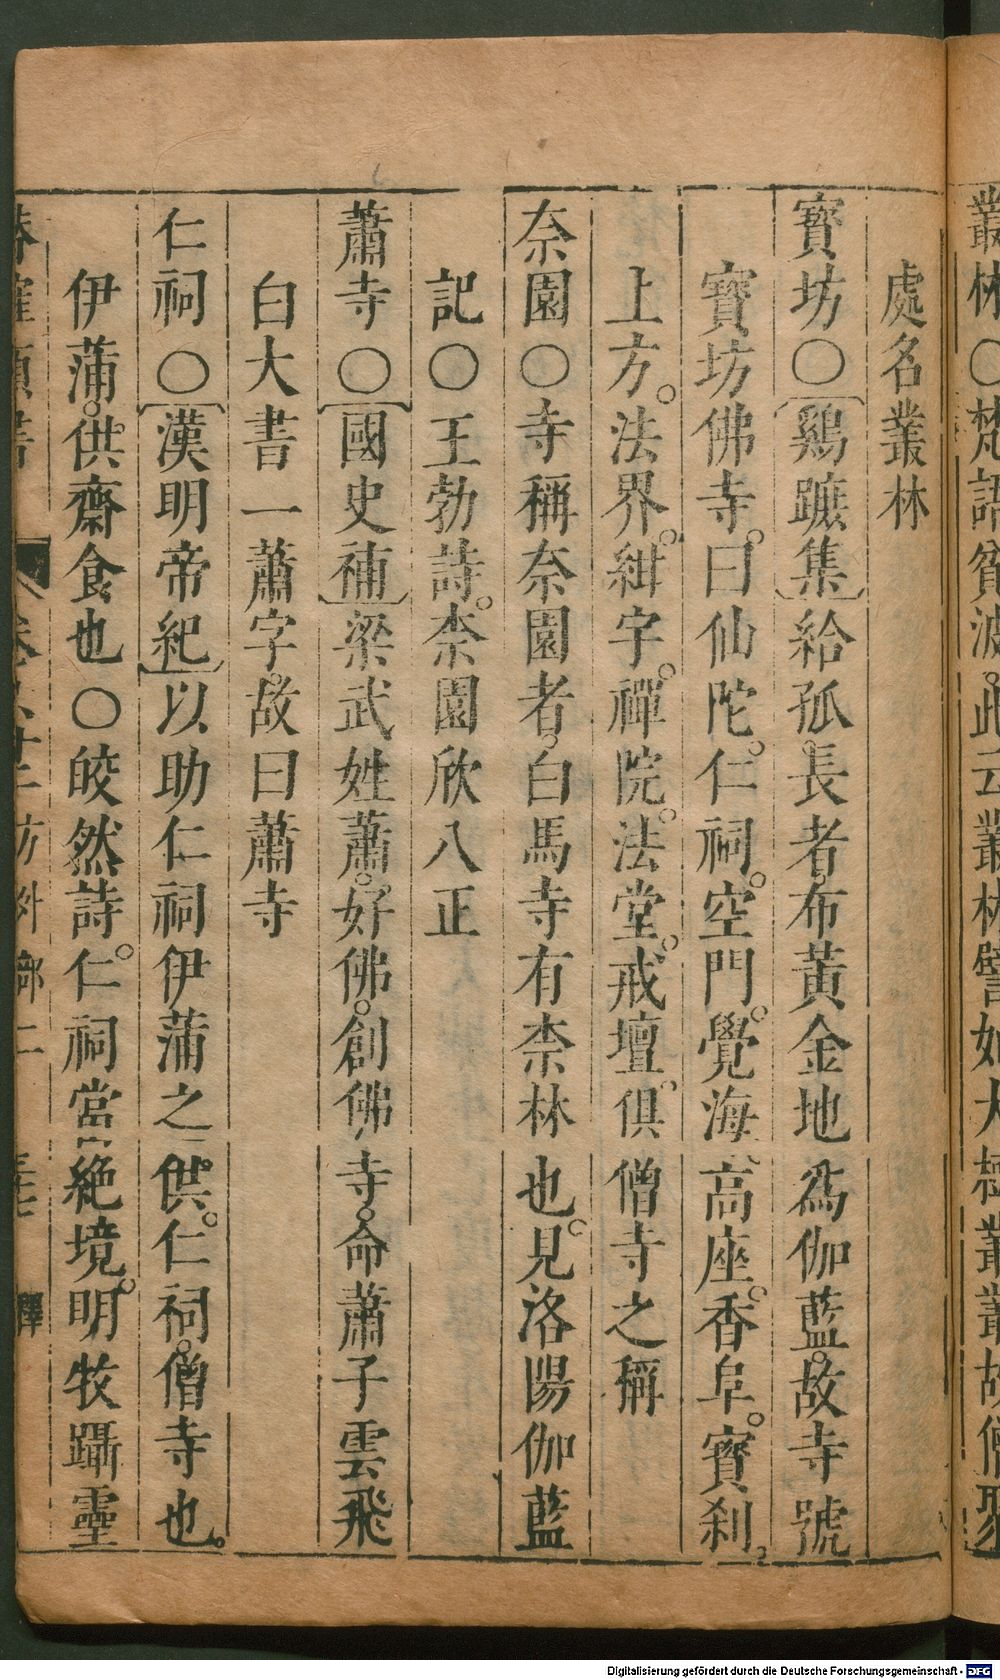 叢林〇梵語貧波。此云叢林。譬如大樹叢叢。故僧聚
處名叢林
寳坊〇〔鷄蹠集〕給孤長者。布黃金地爲伽藍。故寺號
寳坊佛寺。曰仙陀。仁祠。空門。覺海、高座。香阜。寳刹、
上方。法界。紺宇。禪院。法堂。戒壇。俱僧寺之稱
奈園〇寺稱奈園者。白馬寺有柰林也。見洛陽伽藍
記〇王勃詩。柰園欣八正
蕭寺〇〔國史補〕梁武姓蕭。好佛。創佛寺。命蕭子雲飛
白大書一蕭字。故曰蕭寺
仁祠〇〔漢明帝紀〕以助仁祠伊蒲之供。仁祠。僧寺也。
伊蒲。供齋食也〇皎然詩。仁祠當絶境。明牧躡靈
卷 方外部二 釋
Digitalisierung gefördert durch die Deutsche Forschungsgemeinschaft - DFG